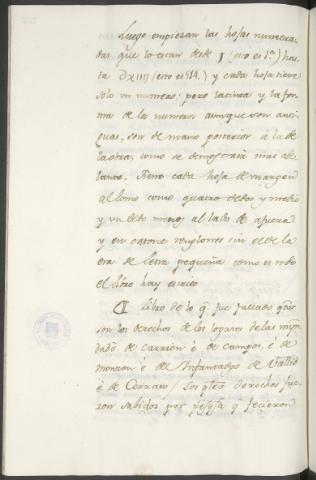 Luego empiezan las hojas numera-
das, que lo estan desde J (esto es 1ª) has-
ta DXIIIJ (esto es 514.) y cada hoja tiene
solo un numero; pero la tinta y la for-
ma de los numeros aunque son anti-
guas, son de mano posterior á la de
la obra, como se demostrará mas ade-
lante. Tiene cada hoja de margen
al lomo como quatro dedos y medio
y un dedo menos al lado de afuera
y en catorce renglones sin el de la
era de letra pequeña como es todo
el libro hay escrito
Libro de lo q̃ fue fallado q̃tos
son los derechos de los logares de las mr̃in
dads̃ de Carrion é de Campos, é de
monzon é de Infantadgo de Vallid
é de Cerrato / Los q̃les derechos fue
ron sabidos por pesq̃sa q̃ fecieron